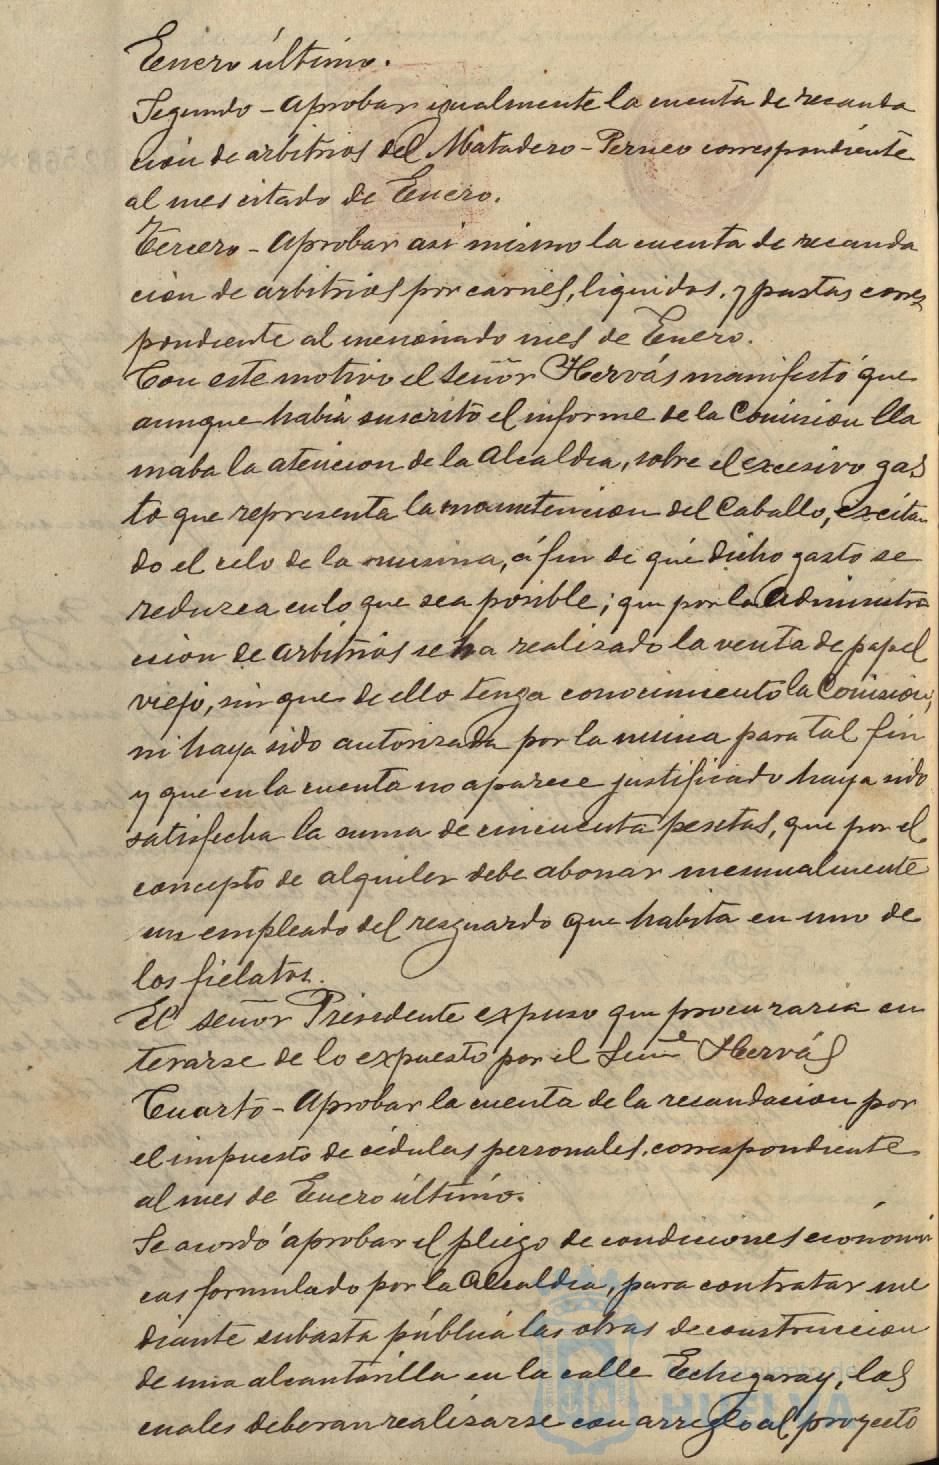 Enero último.
Segundo - Aprobar igualmente la cuenta de recauda
ción de arbitrios del Matadero - Perneo correspondiente
al mes citado de Enero.
Tercero - Aprobar asi mismo la cuenta de recauda
ción de arbitrios por carnes, liquidos, y pastas corres
pondiente al mencionado mes de Enero.
Con este motivo el señor Hervás manifestó que
aunque habia suscrito el informe de la Comision lla
maba la atencion de la Alcaldia, sobre el excesivo gas
to que representa la manutencion del Caballo, excitan
do el celo de la misma, á fin de que dicho gasto se
reduzca en lo que sea posible; que por la Administra
cion de arbitrios se ha realizado la venta de papel
viejo, sin que de ello tenga conocimiento la Comision,
ni haya sido autorizada por la misma para tal fin
y que en la cuenta no aparece justificado haya sido
satisfecha la suma de cincuenta pesetas, que por el
concepto de alquiler debe abonar mensualmente
un empleado del resguardo que habita en uno de
los fielatos.
El señor Presidente expuso que procuraria en
terarse de lo expuesto por el Señor Hervás
Cuarto - Aprobar la cuenta de la recaudacion por
el impuesto de cédulas personales, correspondiente
al mes de Enero último.
Se acordó aprobar el pliego de condiciones económi
cas formulado por la Alcaldia, para contratar me
diante subasta pública las obras de construccion
de una alcantarilla en la calle Echegaray, las
cuales deberan realizarse con arreglo al proyecto
Ayuntamiento de
HUELVA